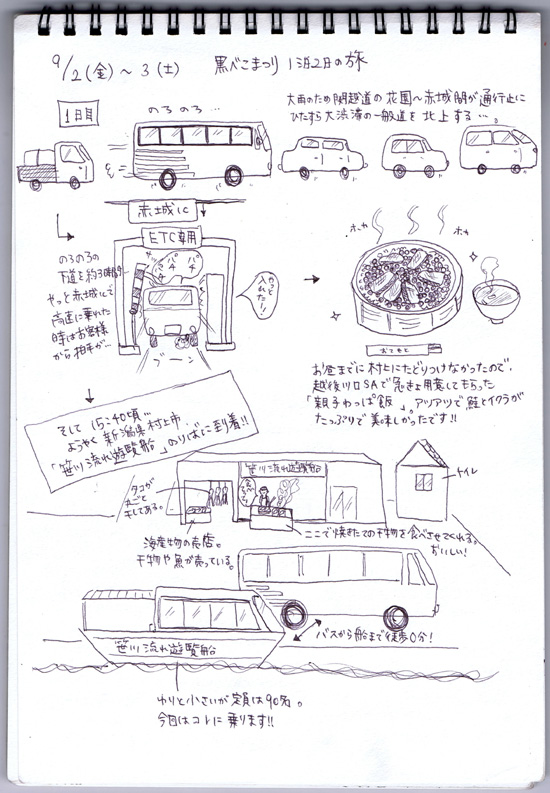 9/2(金)～3(土)
黒べこまつり1泊2日の旅
1日目
のろのろ…
大雨のため関越道の花園～赤城間が通行止に
ひたすら大渋滞の一般道を北上する…
赤城IC
ETC専用
パチ
パチ
パチ
やっと
入れた!!
ブーン
のろのろの
下道を約3時間
やっと赤城ICで
高速に乗れた
時はお客様
から拍手が…
ホャ
ホャ
おてもと
お昼までに村上にたどりつけなかったので、
越後川口SAで急きょ用意してもらった
「親子わっぱ飯」。アツアツで鮭とイクラが
たっぷりで美味しかったです!!
そして15:40頃…
ようやく新潟県村上市
「笹川流れ遊覧船」のりばに到着!!
笹川流れ遊覧船
トイレ
タコが
丸ごと
干してある。
海産物の売店。
干物や魚が売っている。
ここで焼きたての干物を食べさせてくれる。
おいしい!
笹川流れ遊覧船
バスから船まで徒歩0分!
わりと小さいが定員は90名。
今回はコレに乗ります!!